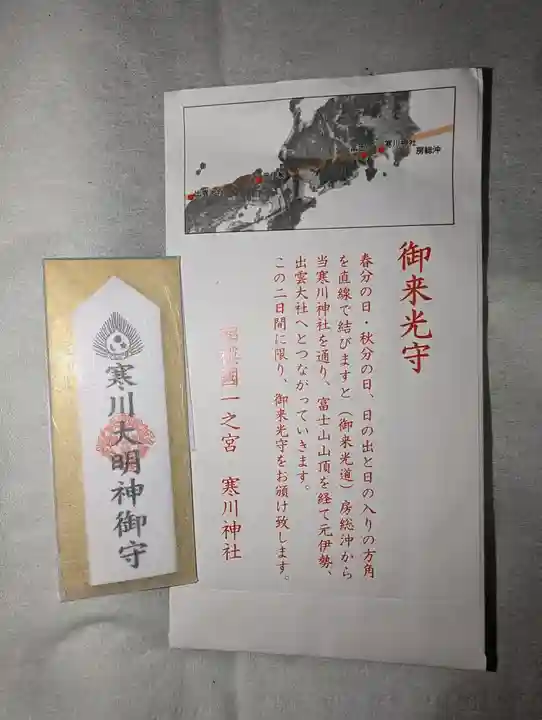 寒川神社
房総沖
御来光守
春分の日・秋分の日、日の出と日の入りの方角
を直線で結びますと（御来光道）房総沖から
当寒川神社を通り、富士山山頂を経て元伊勢、
出雲大社へとつながっていきます。
この二日間に限り、御来光守をお頒け致します。
相模國一之宮　寒川神社
寒川大明神御守